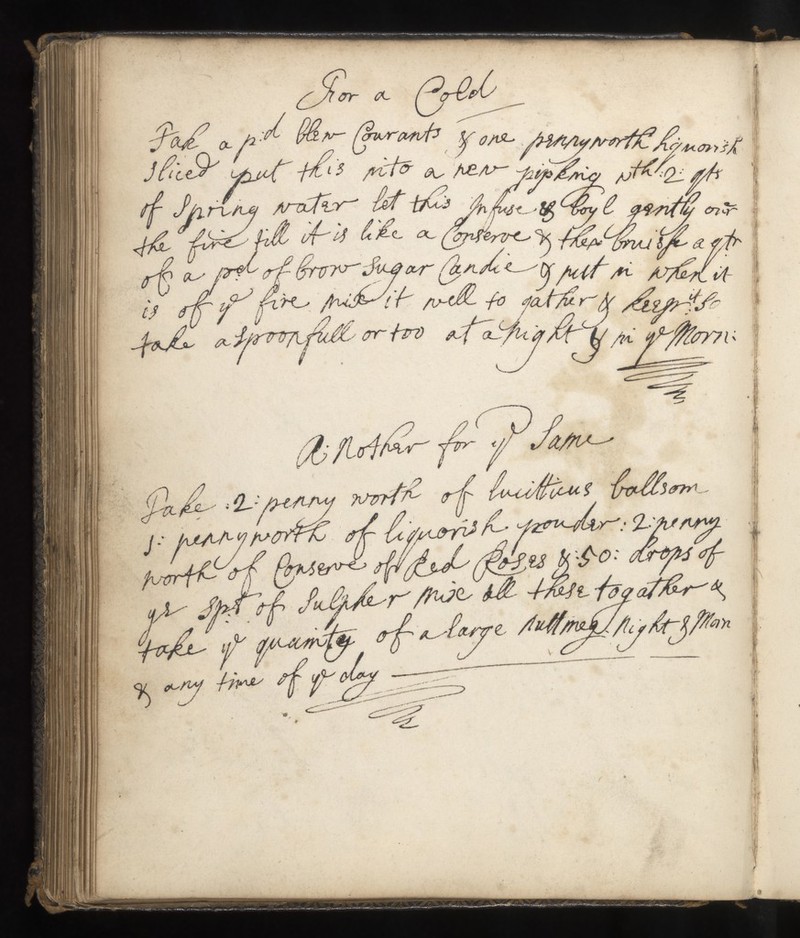 For a Cold
Take a p:d blew Courants & one pennyworth liquorish
sliced put this into a new pipking wth :2: qts
of Spring water let this Infuse & boyl gently over
the fire till it is like a Conserve & then bruise a qtr
of a pod of brow Sugar Candie & putt in when it
is of ye fire Mix it well to gather & keep it So
take a spoonfull or too at a Night & in ye Morn:
A: Nother for ye Same
Take :2: penny worth of lucittuus ballsom
1: pennyworth of liquorish pouder :2: penny
worth of Conserve of Red Roses & :50: drops of
ye spt of Sulpher Mix all these togather &
take ye quaintty of a large nuttmeg Night & Morn
& any time of ye day